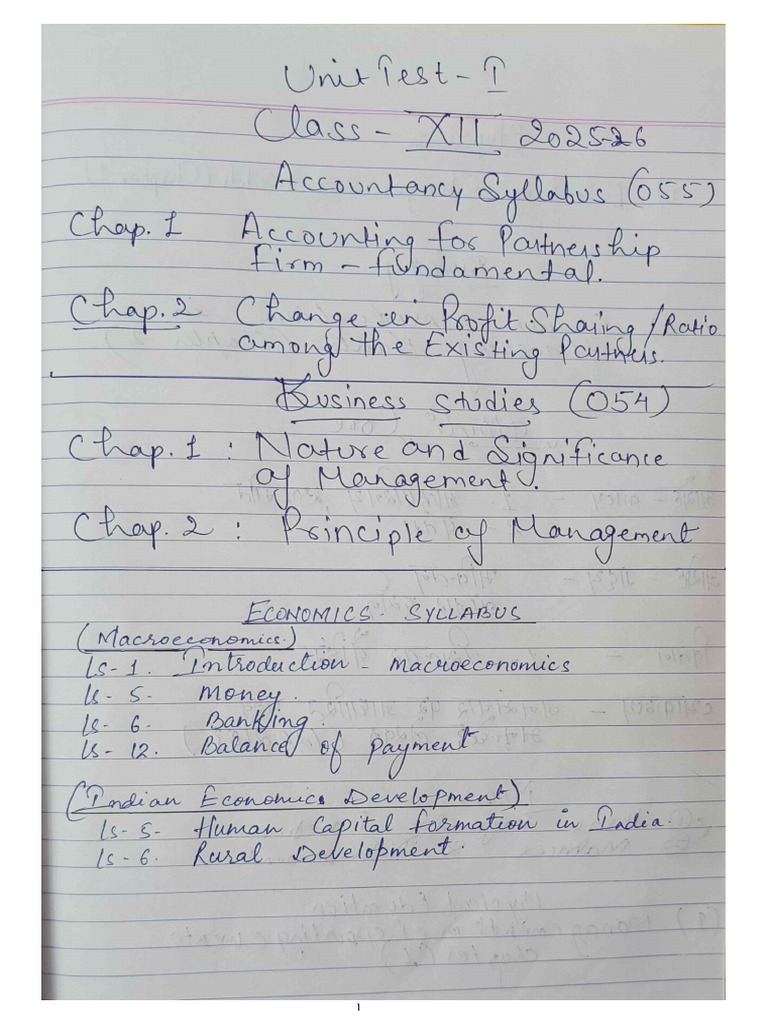 Unit Test - I
Class - XII 2025-26
Accountancy Syllabus (055)
Chap. 1 Accounting for Partnership
Firm - fundamental.
Chap. 2 Change in Profit Shaing / Ratio
among the Existing Partners.
Business Studies (054)
Chap. 1 : Nature and Significance
of Management.
Chap. 2 : Principle of Management
ECONOMICS - SYLLABUS
(Macroeconomics.)
Ls - 1. Introduction - macroeconomics
Ls - 5. Money.
Ls - 6. Banking.
Ls - 12. Balance of payment
(Indian Economics Development)
Ls - 5 - Human Capital formation in India.
Ls - 6. Rural Development.
1